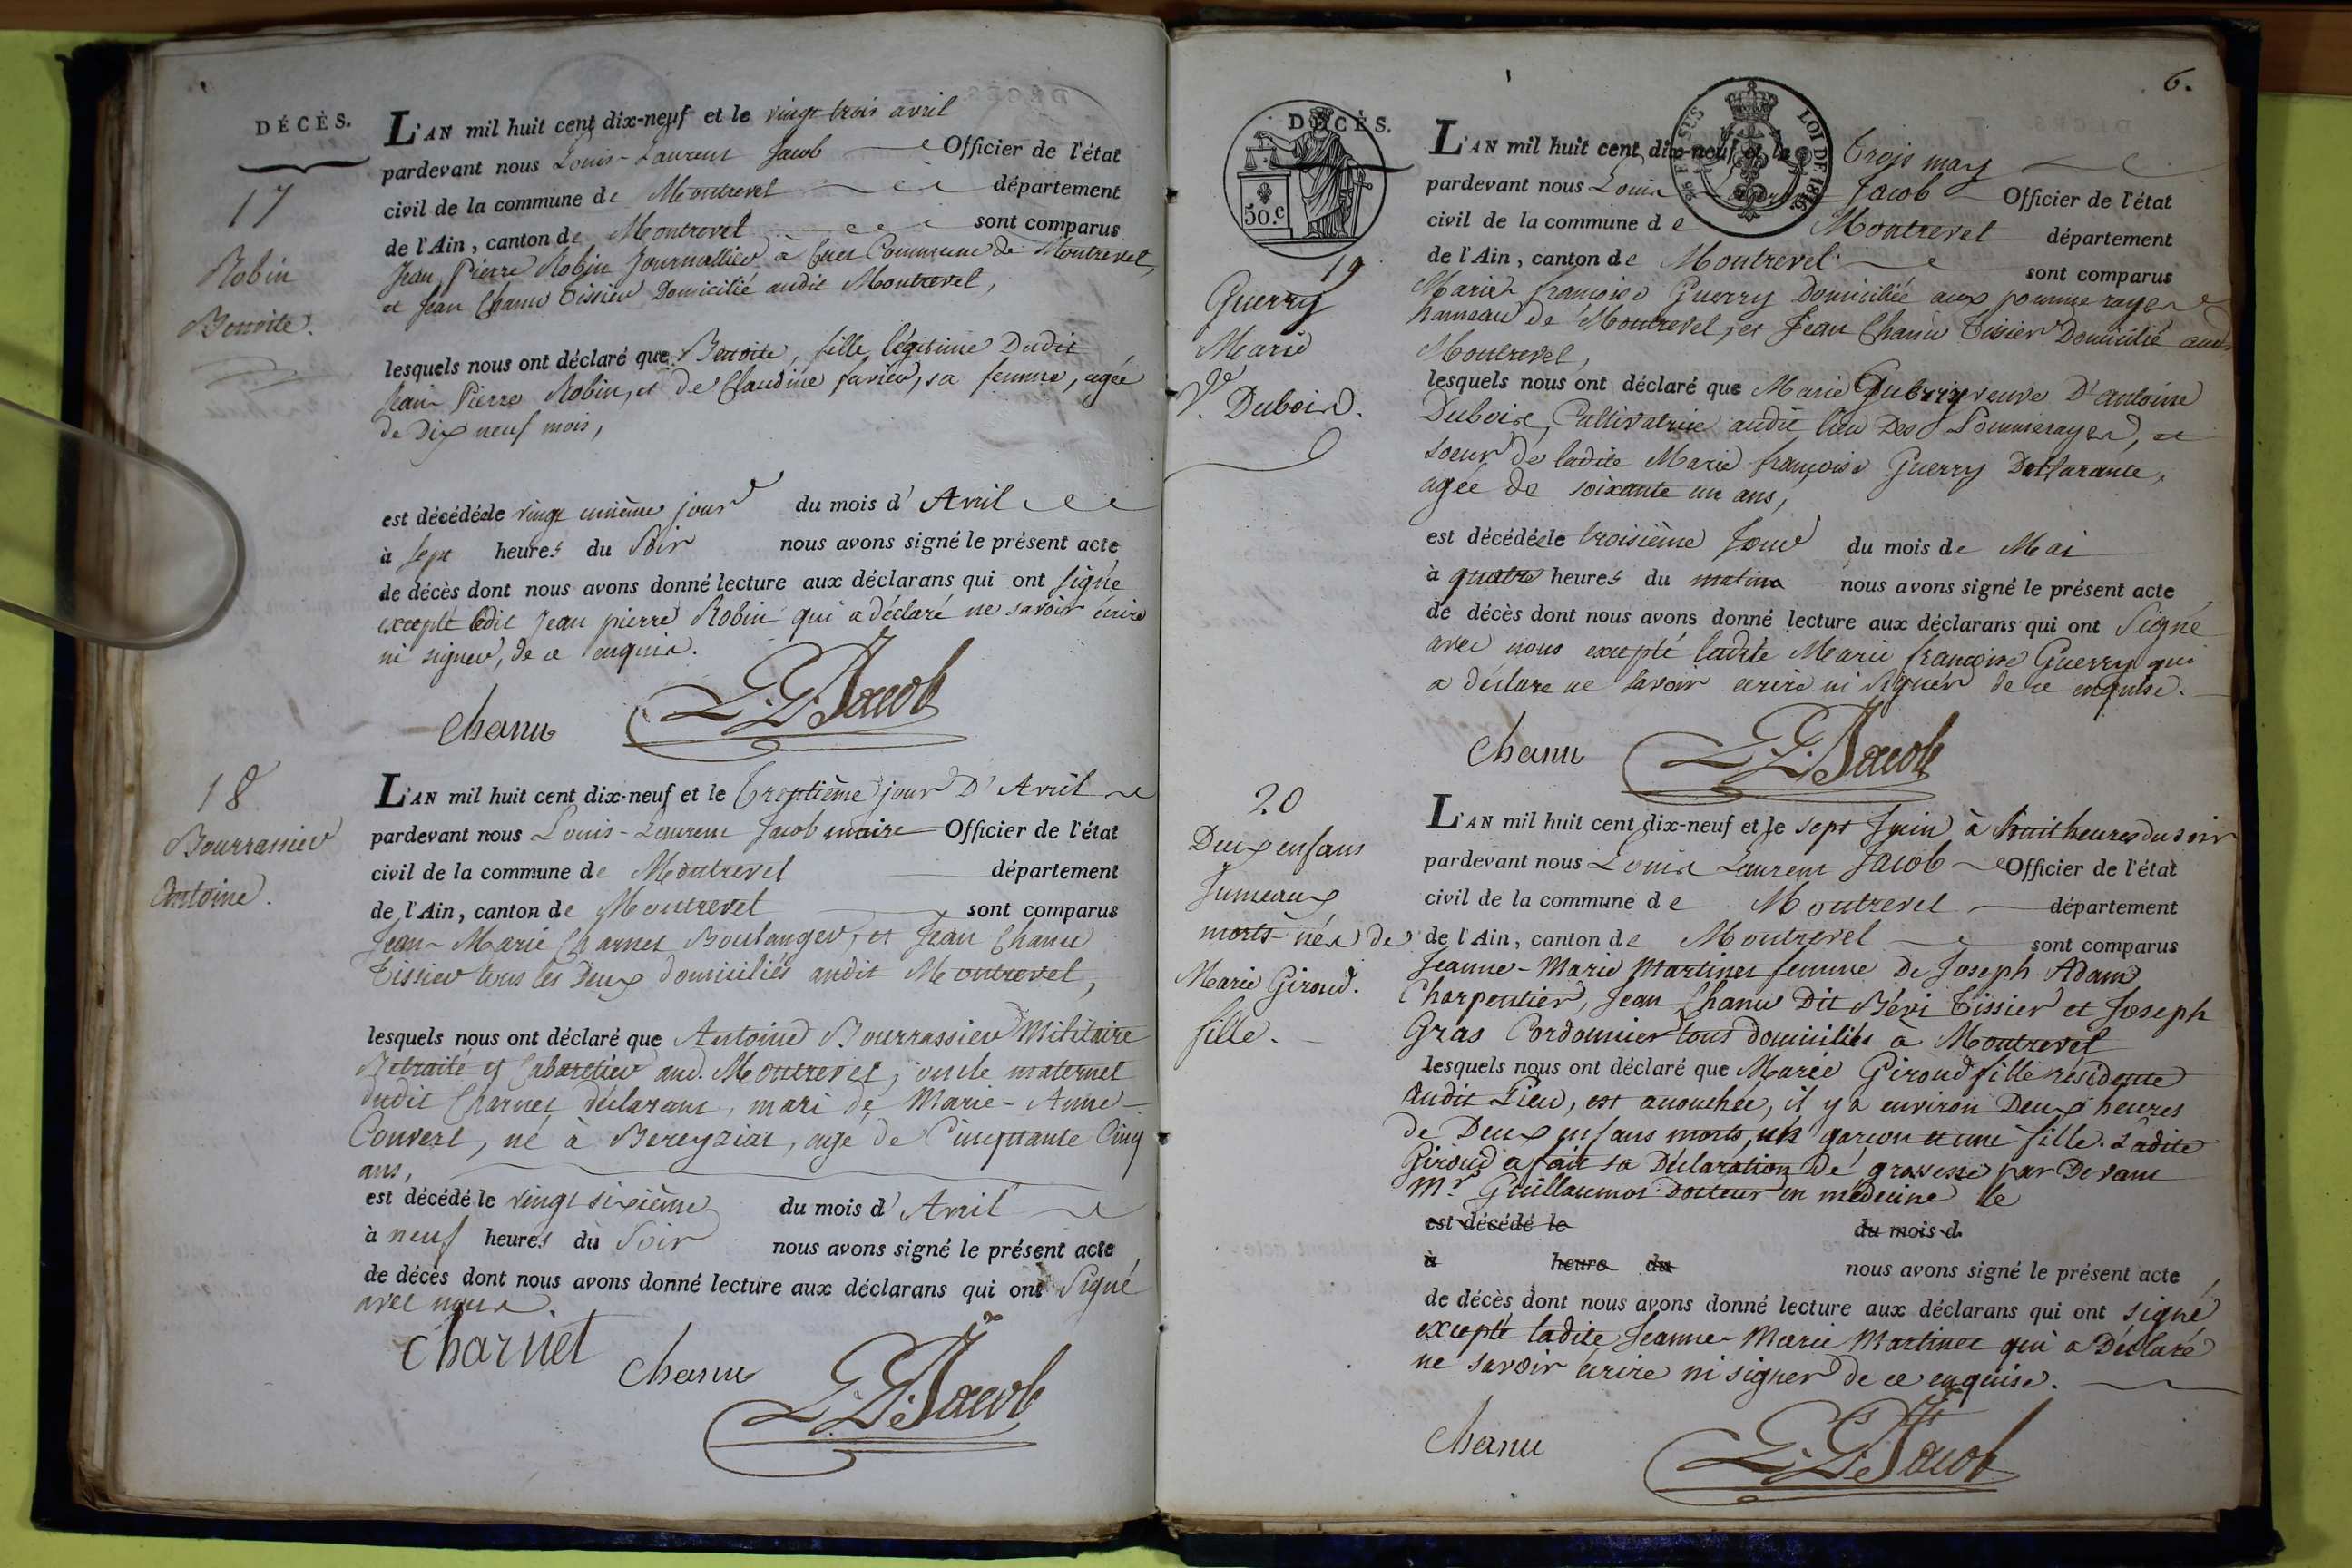 DÉCÈS.
17
Robin
Benoite.
L'AN mil huit cent dix-neuf et le vingt trois avril
pardevant nous Louis-Laurent Jacob Officier de l'état
civil de la commune de Montrevel département
de l'Ain, canton de Montrevel sont comparus
Jean Pierre Robin Journallier à Commune de Montrevel,
et Jean Chanu Tissier Domicilié audit Montrevel,
lesquels nous ont déclaré que Benoite, fille légitime Dudit
Jean Pierre Robin, et de Claudine favier, sa femme, agée
de Dix neuf mois,
est décédée le vingt unième jour du mois d'Avril
à sept heures du Soir nous avons signé le présent acte
de décès dont nous avons donné lecture aux déclarans qui ont signé
excepté ledit Jean pierre Robin qui a déclaré ne savoir écrire
ni signer, de ce enquis.
Chanu L. L. Jacob
18
Bourrassier
Antoine.
L'AN mil huit cent dix-neuf et le Trentième jour D'Avril
pardevant nous Louis-Laurent Jacob maire Officier de l'état
civil de la commune de Montrevel département
de l'Ain, canton de Montrevel sont comparus
Jean-Marie Charnet Boulanger, et Jean Chanu
Tissier tous les deux domiciliés audit Montrevel,
lesquels nous ont déclaré que Antoine Bourrassier Militaire
Retraité et Cabaretier aud. Montrevel, oncle maternel
dudit Charnet déclarant, mari de Marie-Anne
Convert, né à Bereyziat, agé de Cinquante Cinq
ans,
est décédé le vingt sixième du mois d'Avril
à neuf heures du Soir nous avons signé le présent acte
de décès dont nous avons donné lecture aux déclarans qui ont Signé
avec nous.
Charnet Chanu L. L. Jacob
6.
DÉCÈS.
50.c
LOI DE 1816.
19
Guerry
Marie
Ve. Dubois.
L'AN mil huit cent dix-neuf et le Trois may
pardevant nous Louis Jacob Officier de l'état
civil de la commune de Montrevel département
de l'Ain, canton de Montrevel sont comparus
Marie françoise Guerry Domiciliée aux pommerayes
hameau de Montrevel, et Jean Chanu Tissier Domicilié aud.
Montrevel,
lesquels nous ont déclaré que Marie Guerry veuve D'antoine
Dubois, Cultivatrice audit lieu Des Pommerayes, et
soeur de ladite Marie françoise Guerry Déclarante,
agée de soixante un ans,
est décédée le troisième Jour du mois de Mai
à quatre heures du matin nous avons signé le présent acte
de décès dont nous avons donné lecture aux déclarans qui ont Signé
avec nous excepté ladite Marie françoise Guerry qui
a déclaré ne savoir ecrire ni signer de ce enquise.
Chanu L. L. Jacob
20
Deux enfans
Jumeaux
morts-nés de
Marie Giroud.
fille.
L'AN mil huit cent dix-neuf et le sept Juin à huit heures du soir
pardevant nous Louis Laurent Jacob Officier de l'état
civil de la commune de Montrevel département
de l'Ain, canton de Montrevel sont comparus
Jeanne-Marie Martinet femme De Joseph Adam
Charpentier, Jean Chanu Dit Béri Tissier et Joseph
Gras Cordonnier tous domiciliés à Montrevel
lesquels nous ont déclaré que Marie Giroud fille résidente
audit Lieu, est accouchée, il y a environ Deux heures
de Deux enfans morts, un garçon et une fille. Ladite
Giroud a fait sa Déclaration de grossesse par Devant
Mr. Guillaumot Docteur en médecine le
est décédé le du mois d
à heure du nous avons signé le présent acte
de décès dont nous avons donné lecture aux déclarans qui ont signé
excepté ladite Jeanne-Marie Martinet qui a Déclaré
ne savoir écrire ni signer de ce enquise.
Chanu L. L. Jacob